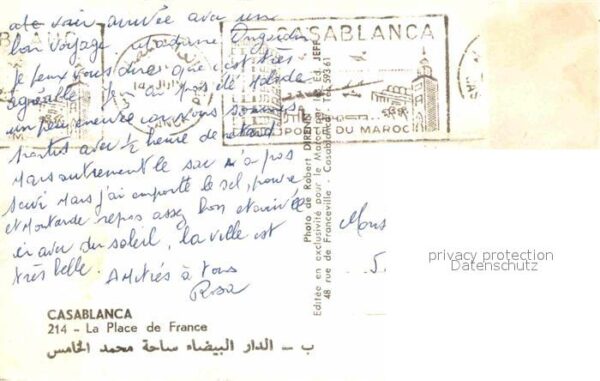 voir arrivée avec un
bon voyage. Madame
Je peux vous dire que c'est très
agréable. J'en ai pas été malade
un peu énervée car nous sommes
partis avec 1/2 heure de retard
Mais autrement le sac m'a pas
servi Mais j'ai emporté le sel, poivre
et Moutarde repas assez bon et arrivée
ici avec du soleil, la ville est
très belle. Amitiés à tous
Rosa
CASABLANCA
PORT DU MAROC
Photo de Robert DIRENIS
Editée en exclusivité pour le Maroc par les Ed. JEFF
48 rue de Franceville - Casablanca - Tél. 593 61
privacy protection
Datenschutz
CASABLANCA
214 - La Place de France
ب - الدار البيضاء ساحة محمد الخامس